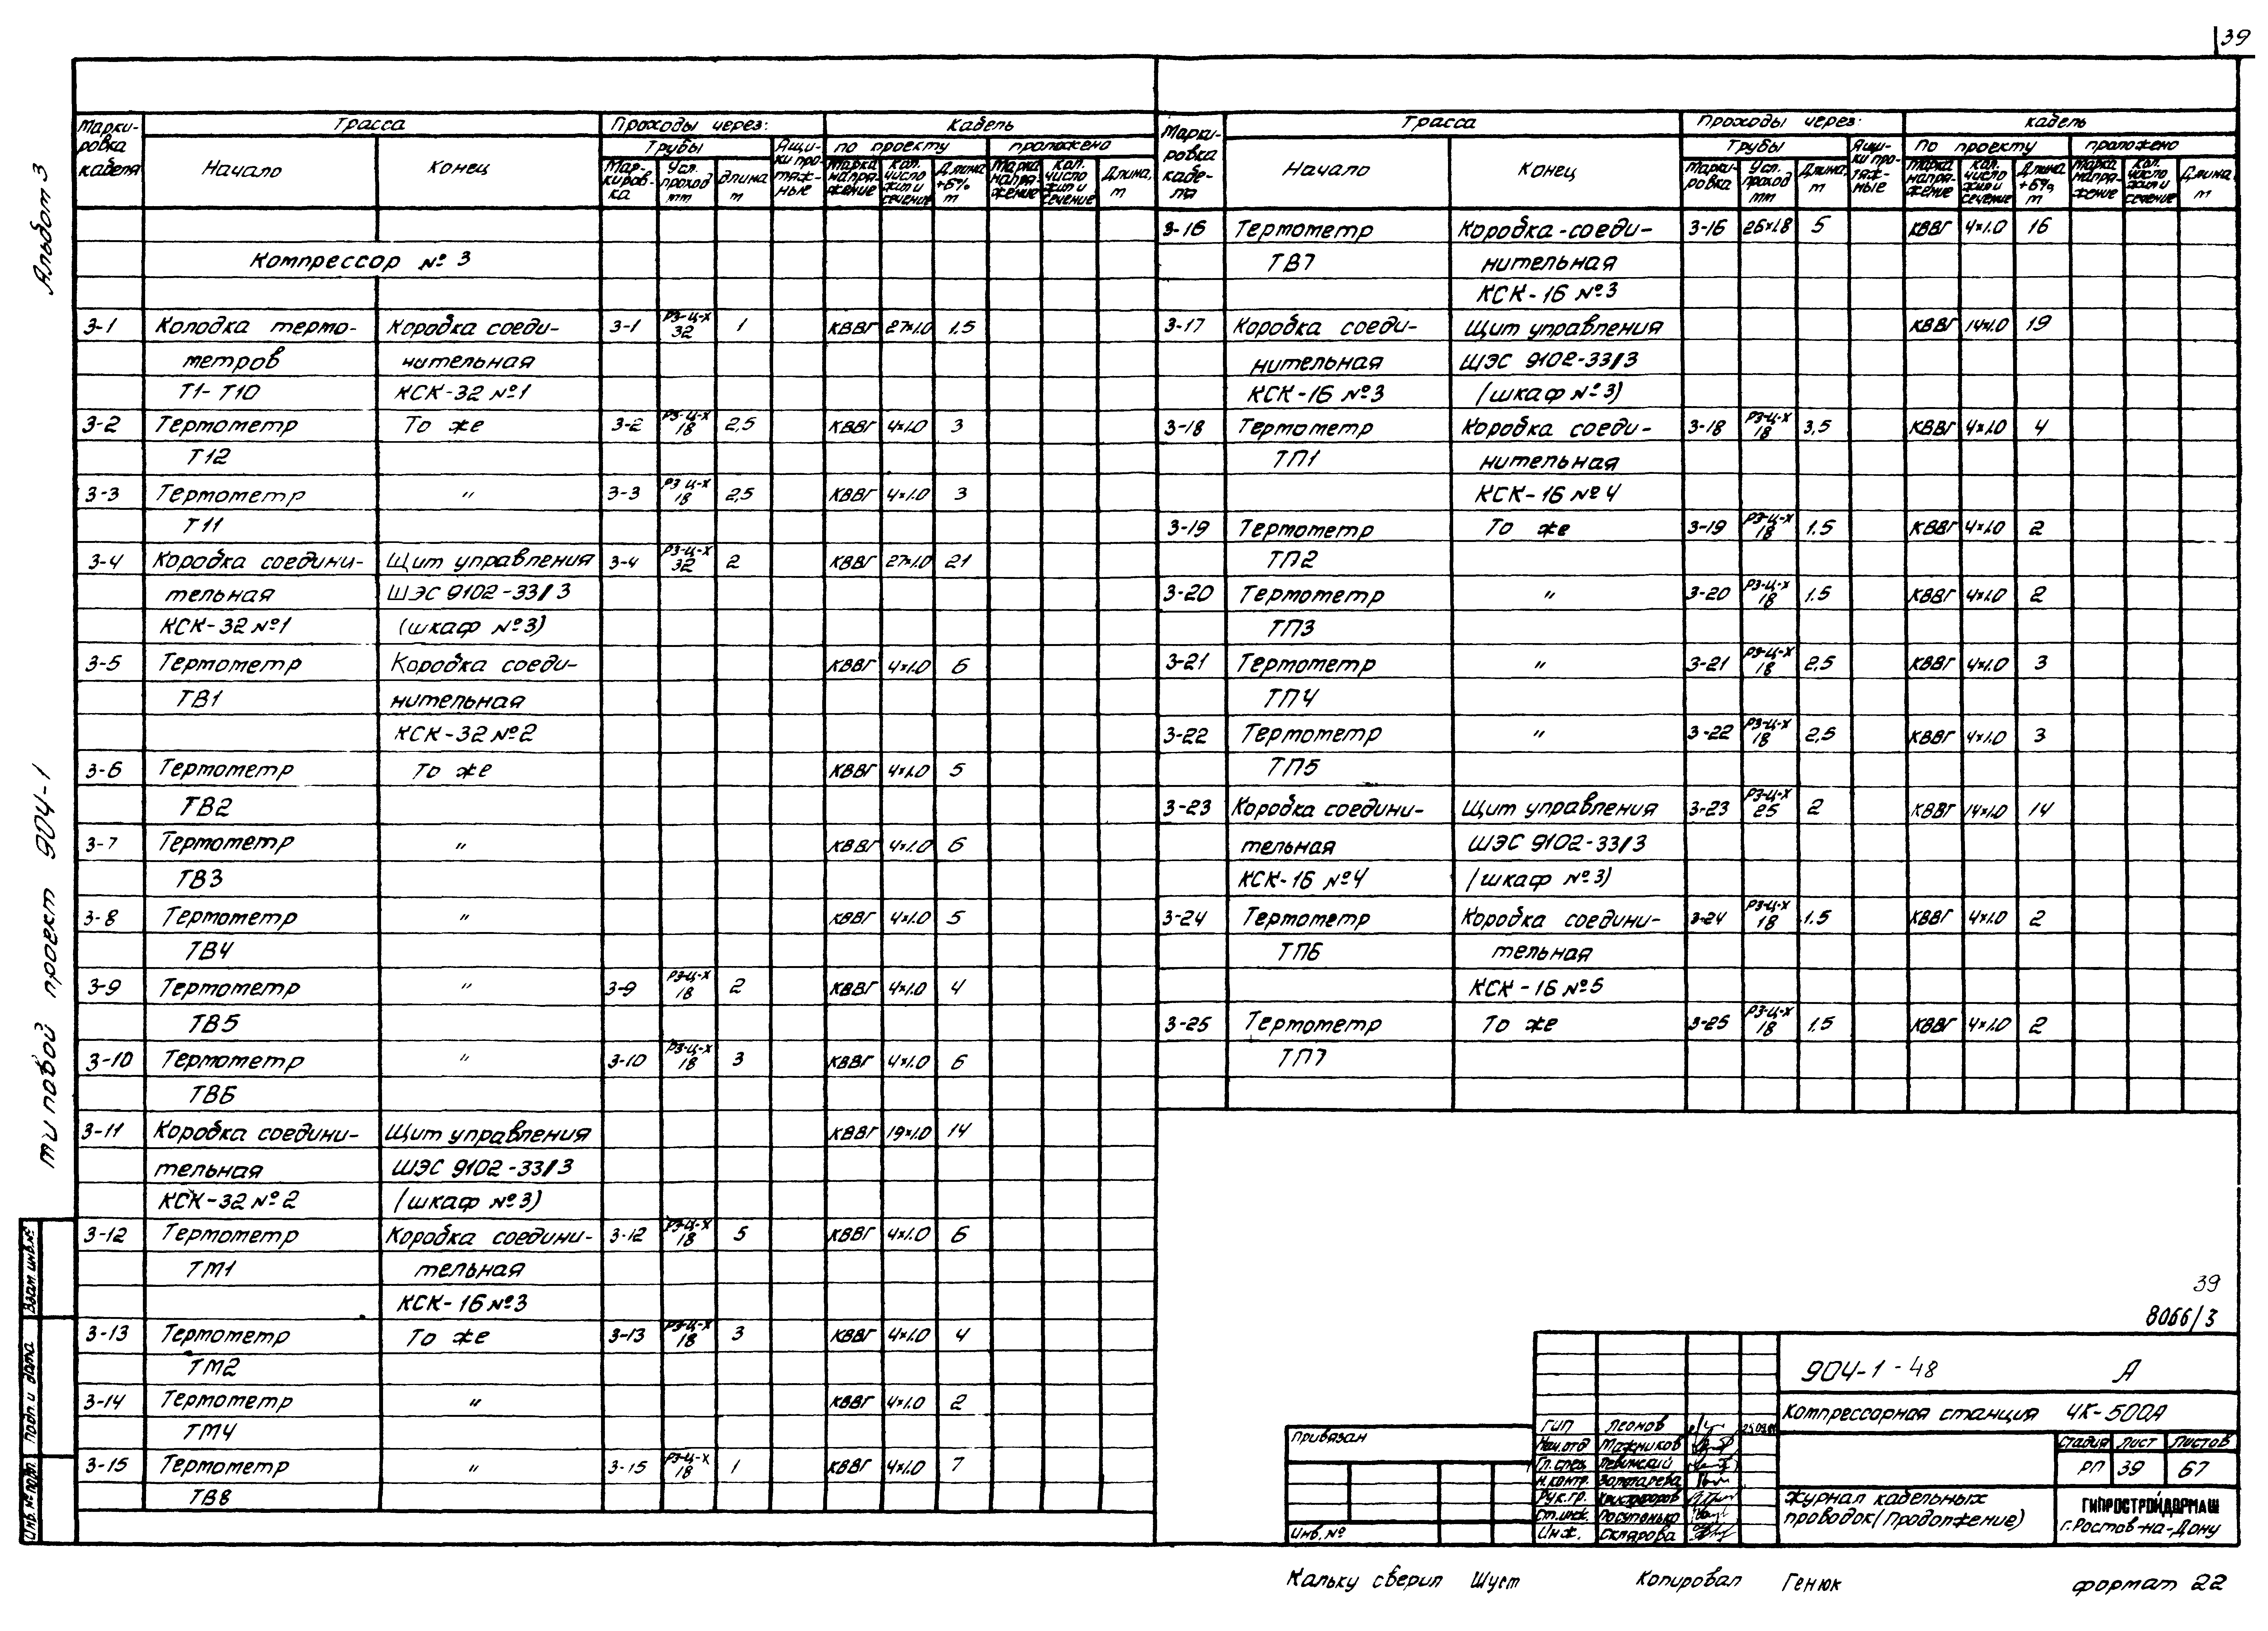 39
Альбом 3
типовой проект 904-1
Взам инв.№
Подп и дата
Инв.№ подл.
Марки-ровка кабеля | Трасса | Проходы через: | Кабель
Начало | Конец | Трубы | Ящи-ки про-тяж-ные | по проекту | проложено
Мар-киров-ка | Усл. проход мм | длина м | Марка напря-жение | Кол. число жил и сечение | Длина +6% м | Марка напря-жение | Кол. число жил и сечение | Длина, м
Компрессор №3
3-1 Колодка термо- Коробка соеди- 3-1 РЗ-Ц-Х 32 1 КВВГ 27×1.0 1,5
метров нительная
Т1-Т10 КСК-32 №1
3-2 Термометр То же 3-2 РЗ-Ц-Х 18 2,5 КВВГ 4×1.0 3
Т12
3-3 Термометр " 3-3 РЗ Ц-Х 18 2,5 КВВГ 4×1.0 3
Т11
3-4 Коробка соедини- Щит управления 3-4 РЗ-Ц-Х 32 2 КВВГ 27×1.0 21
тельная ШЭС 9102-33/3
КСК-32 №1 (шкаф №3)
3-5 Термометр Коробка соеди- КВВГ 4×1.0 6
ТВ1 нительная
КСК-32 №2
3-6 Термометр То же КВВГ 4×1.0 5
ТВ2
3-7 Термометр " КВВГ 4×1.0 6
ТВ3
3-8 Термометр " КВВГ 4×1.0 5
ТВ4
3-9 Термометр " 3-9 РЗ-Ц-Х 18 2 КВВГ 4×1.0 4
ТВ5
3-10 Термометр " 3-10 РЗ-Ц-Х 18 3 КВВГ 4×1.0 6
ТВ6
3-11 Коробка соедини- Щит управления КВВГ 19×1.0 14
тельная ШЭС 9102-33/3
КСК-32 №2 (шкаф №3)
3-12 Термометр Коробка соедини- 3-12 РЗ-Ц-Х 18 5 КВВГ 4×1.0 6
ТМ1 тельная
КСК-16 №3
3-13 Термометр То же 3-13 РЗ-Ц-Х 18 3 КВВГ 4×1.0 4
ТМ2
3-14 Термометр " КВВГ 4×1.0 2
ТМ4
3-15 Термометр " 3-15 РЗ-Ц-Х 18 1 КВВГ 4×1.0 7
ТВ8
Марки-ровка кабе-ля | Трасса | Проходы через: | кабель
Начало | Конец | Трубы | Ящи-ки про-тяж-ные | По проекту | проложено
Марки-ровка | Усл. проход мм | Длина, м | Марка напря-жение | Кол. число жил и сечение | Длина +6% м | Марка напря-жение | Кол. число жил и сечение | Длина м
3-16 Термометр Коробка-соеди- 3-16 26×1.8 5 КВВГ 4×1.0 16
ТВ7 нительная
КСК-16 №3
3-17 Коробка соеди- Щит управления КВВГ 14×1.0 19
нительная ШЭС 9102-33/3
КСК-16 №3 (шкаф №3)
3-18 Термометр Коробка соеди- 3-18 РЗ-Ц-Х 18 3,5 КВВГ 4×1.0 4
ТП1 нительная
КСК-16 №4
3-19 Термометр То же 3-19 РЗ-Ц-Х 18 1.5 КВВГ 4×1.0 2
ТП2
3-20 Термометр " 3-20 РЗ-Ц-Х 18 1.5 КВВГ 4×1.0 2
ТП3
3-21 Термометр " 3-21 РЗ-Ц-Х 18 2,5 КВВГ 4×1.0 3
ТП4
3-22 Термометр " 3-22 РЗ-Ц-Х 18 2,5 КВВГ 4×1.0 3
ТП5
3-23 Коробка соедини- Щит управления 3-23 РЗ-Ц-Х 25 2 КВВГ 14×1.0 14
тельная ШЭС 9102-33/3
КСК-16 №4 (шкаф №3)
3-24 Термометр Коробка соедини- 3-24 РЗ-Ц-Х 18 1.5 КВВГ 4×1.0 2
ТП6 тельная
КСК-16 №5
3-25 Термометр То же 3-25 РЗ-Ц-Х 18 1.5 КВВГ 4×1.0 2
ТП7
39
8066/3
904-1-48 А
Компрессорная станция 4К-500А
Привязан
Инв.№
ГИП Леонов
Нач.отд Мажников
Гл.спец Левинский
Н.контр.
Рук.гр. Христофоров
Ст.инж.
Инж. Склярова
Стадия Лист Листов
РП 39 67
Журнал кабельных
проводок (Продолжение)
ГИПРОСТРОЙДОРМАШ
г.Ростов-на-Дону
Кальку сверил Шуст Копировал Генюк формат 22